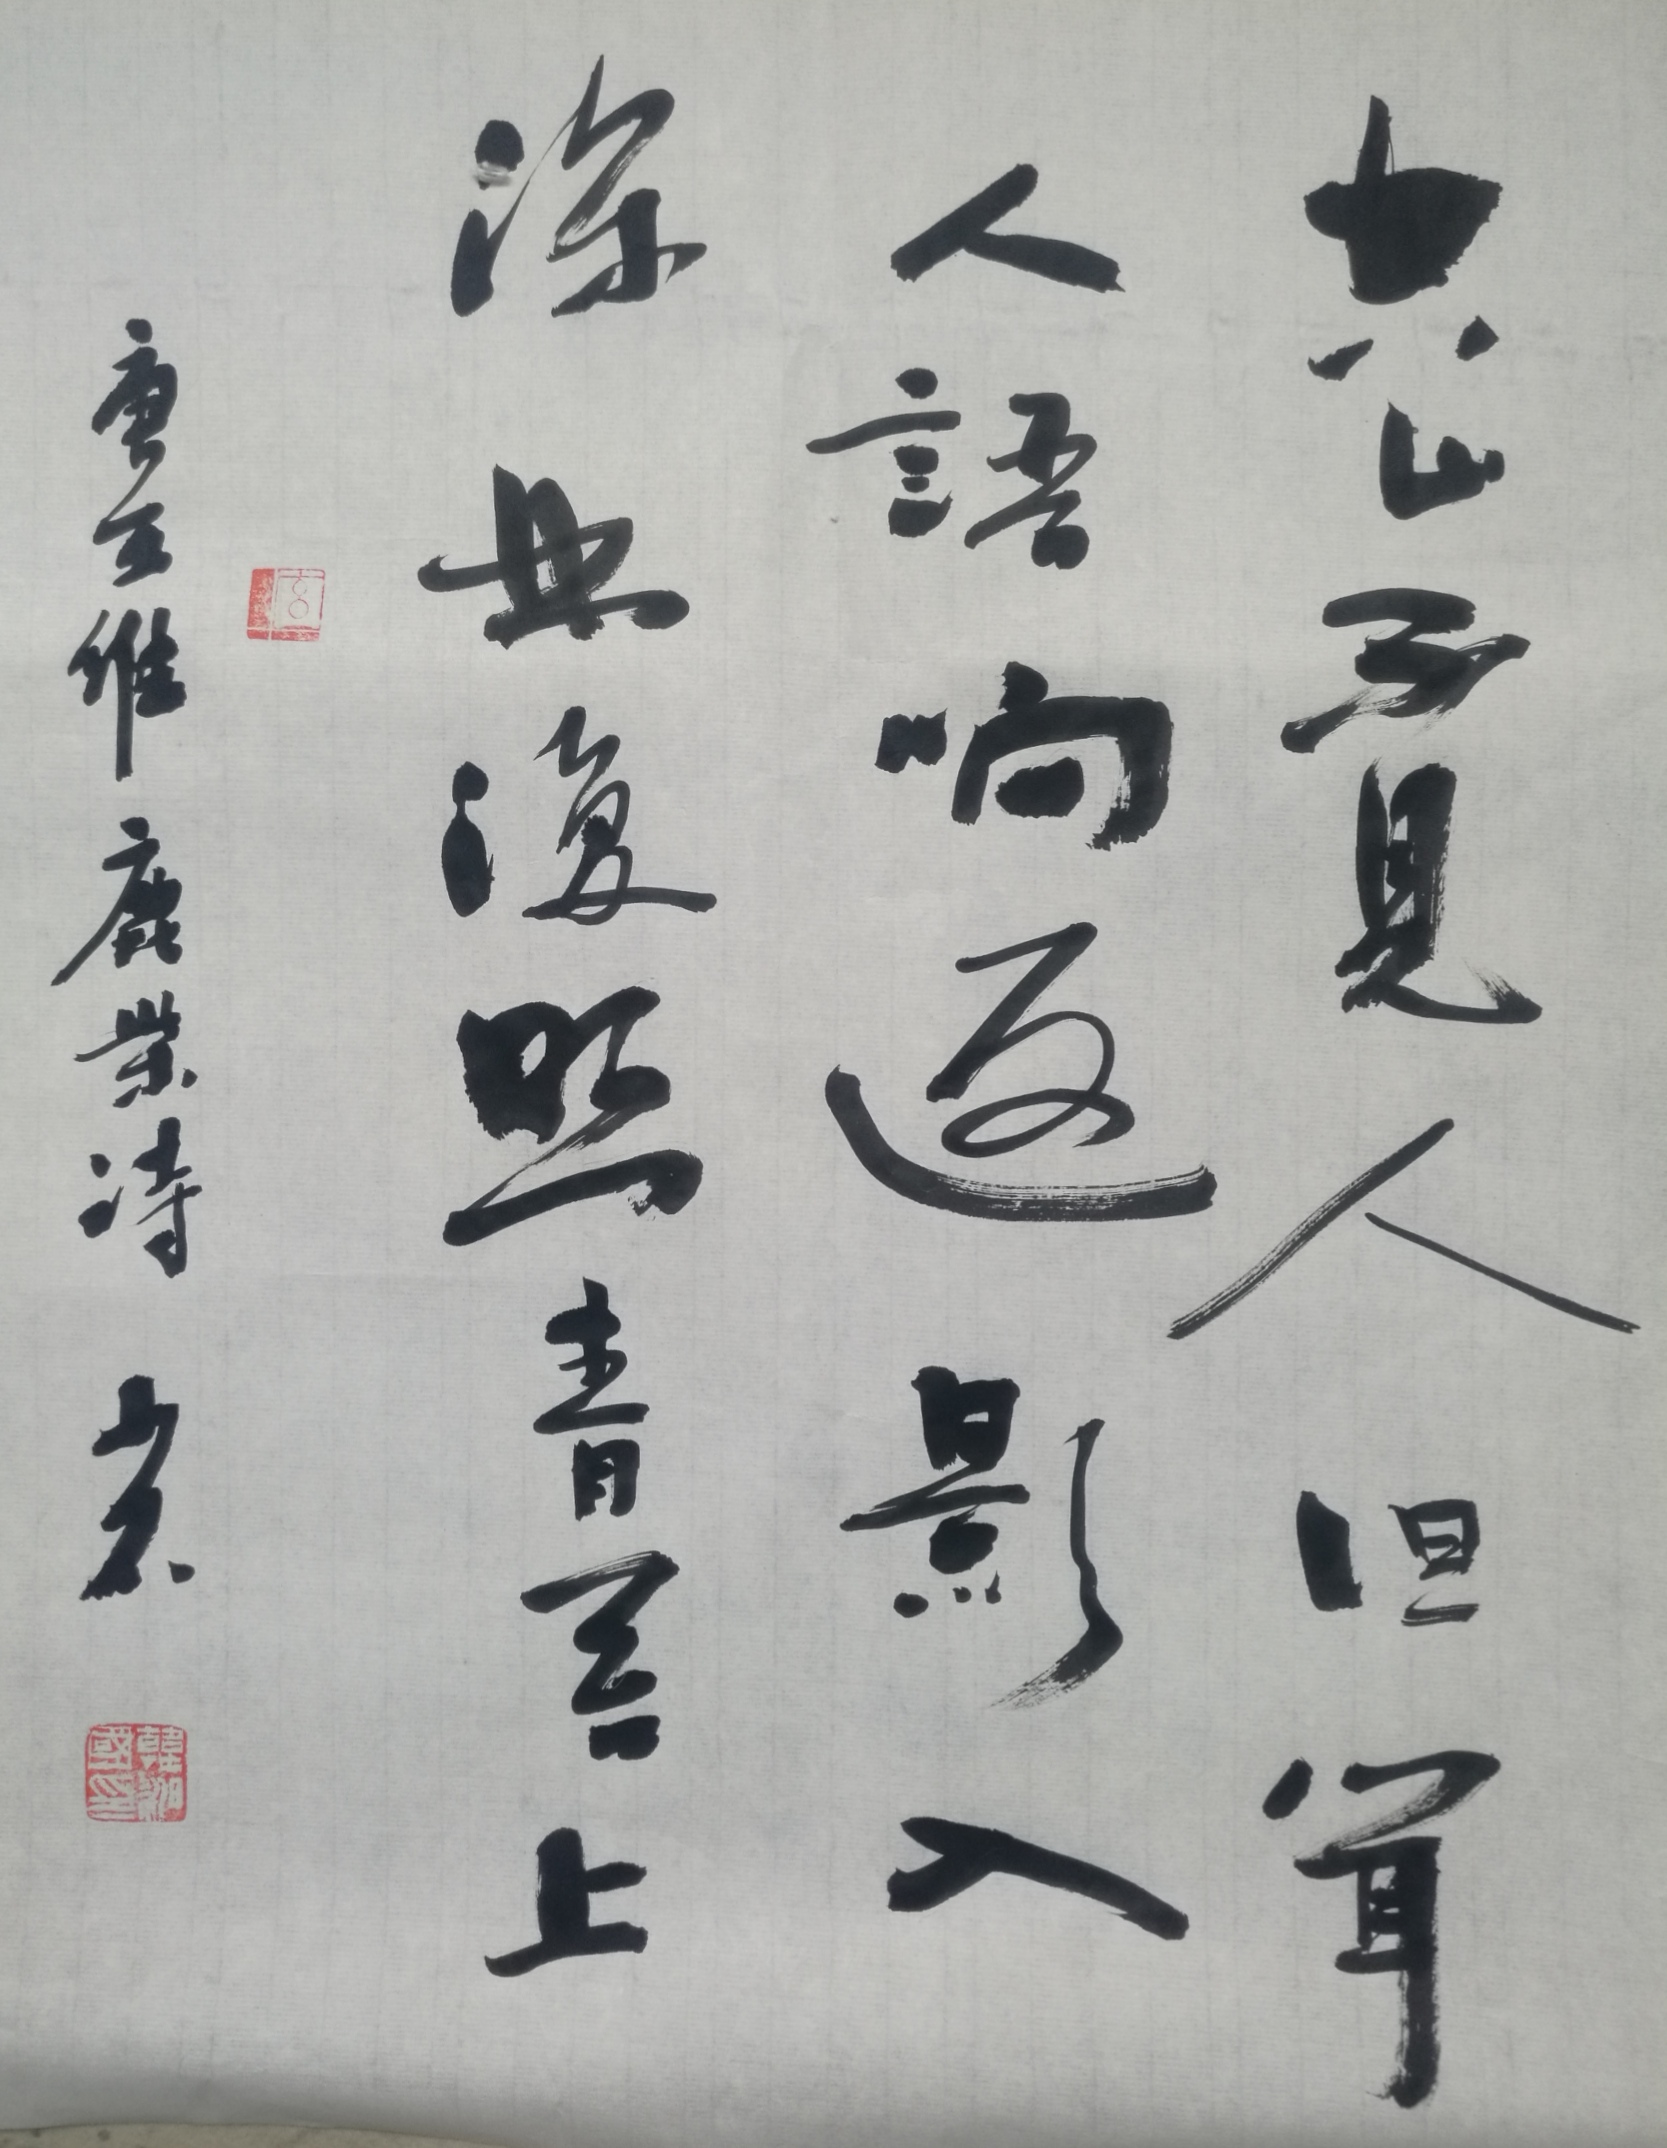 空山不見人但聞
人語响返影入
深林復照青苔上
唐王維鹿柴诗